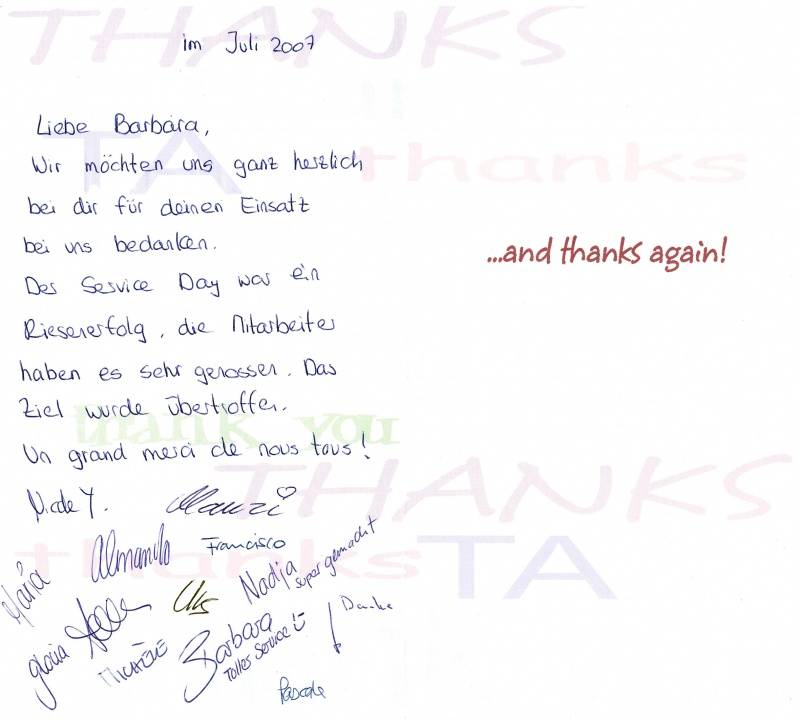 THANKS
im Juli 2007
Liebe Barbara,
TA thanks
Wir möchten uns ganz herzlich
bei dir für deinen Einsatz
bei uns bedanken.
...and thanks again!
Der Service Day war ein
Riesenerfolg, die Mitarbeiter
haben es sehr genossen. Das
Ziel wurde übertroffen.
thank you
Un grand merci de nous tous!
THANKS
Maria
Armando
Francisco
Nadja super gemacht
thanks TA
gloria
Urs
Barbara
Toller Service!
Danke
Pascale